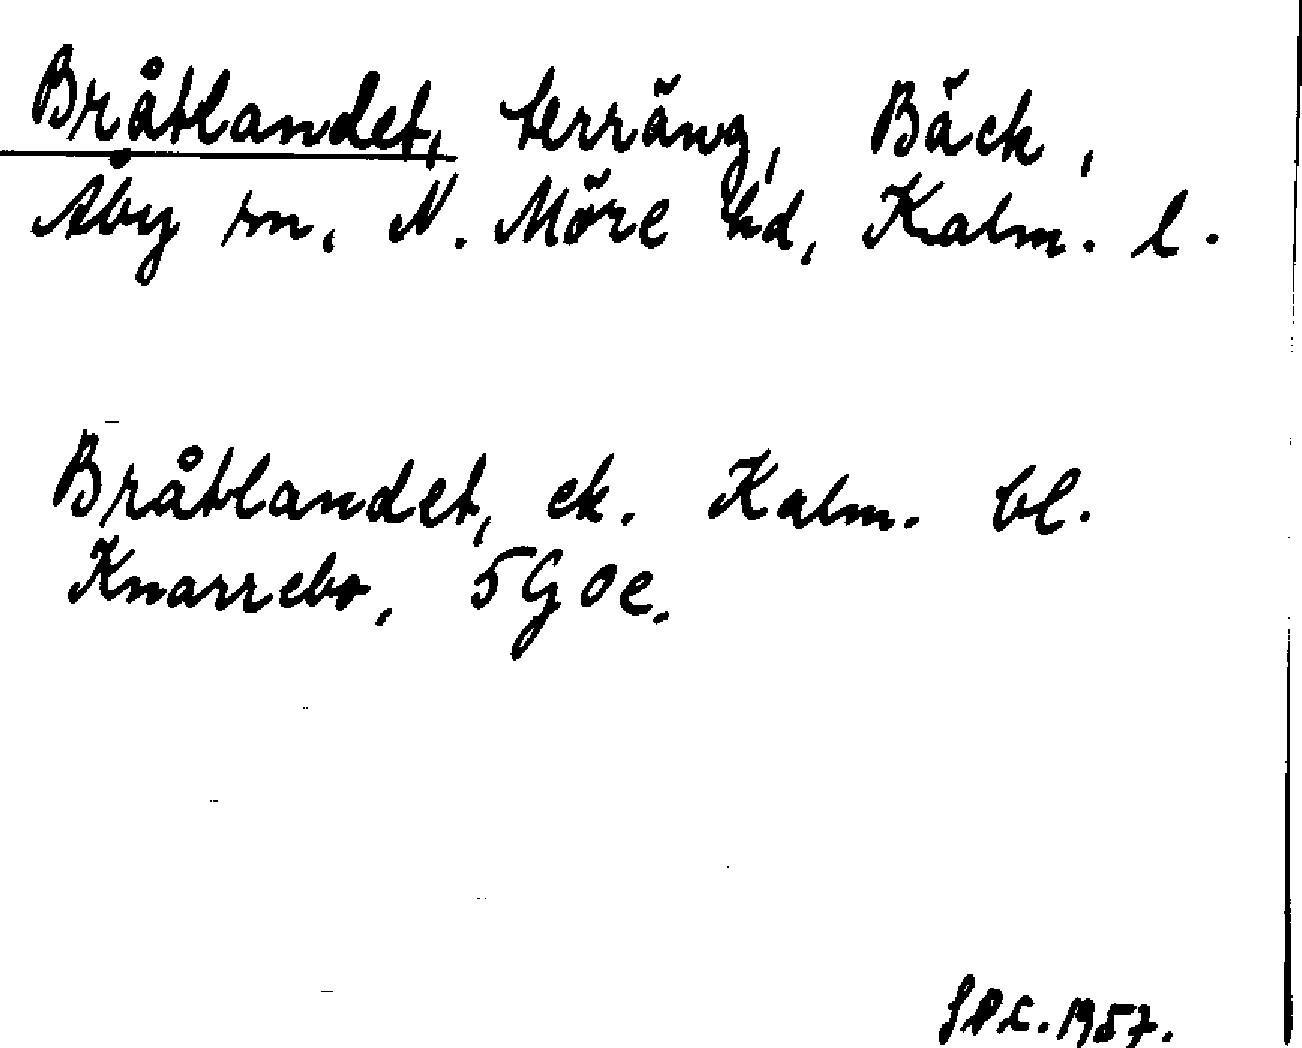 Bråtlandet, terräng, Bäck,
Åby sn, N. Möre hd, Kalm. l.
Bråtlandet, ek. Kalm. bl.
Knarrebo, 5G0e.
1957.